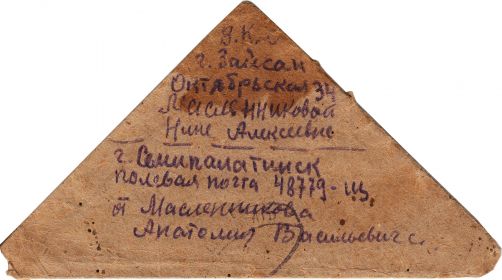 г. Зайсан
Октябрьская 34
Масленниковой
Нине Алексеевне
г. Семипалатинск
полевая почта 48779-Щ
от Масленникова
Анатолия Васильевича